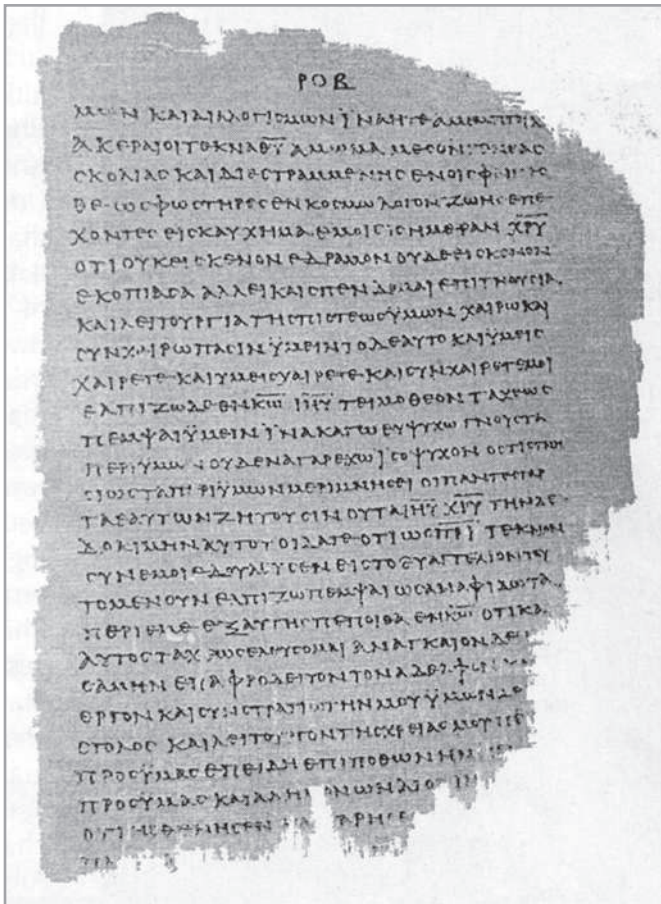 ΡΟΒ
ΜΩΝ ΚΑΙ ΔΙΑΛΟΓΙΣΜΩΝ ΪΝΑ
ΑΚΕΡΑΙΟΙ ΤΕΚΝΑ Θ̅Υ̅ ΑΜΩΜΑ ΜΕΣΟΝ ΓΕΝΕΑΣ
ΣΚΟΛΙΑΣ ΚΑΙ ΔΙΕΣΤΡΑΜΜΕΝΗΣ ΕΝ ΟΙΣ
ΩΣ ΦΩΣΤΗΡΕΣ ΕΝ ΚΟΣΜΩ ΛΟΓΟΝ ΖΩΗΣ ΕΠΕ
ΧΟΝΤΕΣ ΕΙΣ ΚΑΥΧΗΜΑ ΕΜΟΙ ΕΙΣ ΗΜΕΡΑΝ Χ̅Ρ̅Υ̅
ΟΤΙ ΟΥΚ ΕΙΣ ΚΕΝΟΝ ΕΔΡΑΜΟΝ ΟΥΔΕ ΕΙΣ ΚΕΝΟΝ
ΕΚΟΠΙΑΣΑ ΑΛΛ ΕΙ ΚΑΙ ΣΠΕΝΔΟΜΑΙ ΕΠΙ ΤΗ ΘΥΣΙΑ
ΚΑΙ ΛΕΙΤΟΥΡΓΙΑ ΤΗΣ ΠΙΣΤΕΩΣ ΫΜΩΝ ΧΑΙΡΩ ΚΑΙ
ΣΥΝΧΑΙΡΩ ΠΑΣΙΝ ΫΜΕΙΝ ΤΟ ΔΕ ΑΥΤΟ ΚΑΙ ΫΜΕΙΣ
ΧΑΙΡΕΤΕ ΚΑΙ ΫΜΕΙΣ ΧΑΙΡΕΤΕ ΚΑΙ ΣΥΝΧΑΙΡΕΤΕ ΜΟΙ
ΕΛΠΙΖΩ ΔΕ ΕΝ Κ̅Ω̅ Ι̅Η̅Υ̅ ΤΕΙΜΟΘΕΟΝ ΤΑΧΕΩΣ
ΠΕΜΨΑΙ ΫΜΕΙΝ ΪΝΑ ΚΑΓΩ ΕΥΨΥΧΩ ΓΝΟΥΣ ΤΑ
ΠΕΡΙ ΫΜΩΝ ΟΥΔΕΝΑ ΓΑΡ ΕΧΩ ΙΣΟΨΥΧΟΝ ΟΣΤΙΣ
ΤΑ ΠΕΡΙ ΫΜΩΝ ΜΕΡΙΜΝΗΣΕΙ ΟΙ ΠΑΝΤΕΣ ΓΑΡ
ΤΑ ΕΑΥΤΩΝ ΖΗΤΟΥΣΙΝ ΟΥ ΤΑ Ι̅Η̅Υ̅ Χ̅Ρ̅Υ̅ ΤΗΝ ΔΕ
ΔΟΚΙΜΗΝ ΑΥΤΟΥ ΟΙΔΑΤΕ ΟΤΙ ΩΣ Π̅Ρ̅Ι̅ ΤΕΚΝΟΝ
ΣΥΝ ΕΜΟΙ ΕΔΟΥΛΕΥΣΕΝ ΕΙΣ ΤΟ ΕΥΑΓΓΕΛΙΟΝ ΤΟΥ
ΤΟ ΜΕΝ ΟΥΝ ΕΛΠΙΖΩ ΠΕΜΨΑΙ ΩΣ ΑΝ ΑΦΙΔΩ ΤΑ
ΠΕΡΙ ΕΜΕ ΕΞΑΥΤΗΣ ΠΕΠΟΙΘΑ ΕΝ Κ̅Ω̅ ΟΤΙ ΚΑ
ΑΥΤΟΣ ΤΑΧΕΩΣ ΕΛΕΥΣΟΜΑΙ ΑΝΑΓΚΑΙΟΝ ΔΕ
ΣΑΜΗΝ ΕΠΑΦΡΟΔΕΙΤΟΝ ΤΟΝ ΑΔΕΛΦΟΝ
ΕΡΓΟΝ ΚΑΙ ΣΥΝΣΤΡΑΤΙΩΤΗΝ ΜΟΥ ΫΜΩΝ ΔΕ
ΣΤΟΛΟΣ ΚΑΙ ΛΕΙΤΟΥΡΓΟΝ ΤΗΣ ΧΡΕΙΑΣ ΜΟΥ
ΠΡΟΣ ΫΜΑΣ ΕΠΕΙΔΗ ΕΠΙΠΟΘΩΝ ΗΝ
ΠΡΟΣ ΫΜΑΣ ΚΑΙ ΑΔΗΜΟΝΩΝ ΔΙΟ
ΟΤΙ